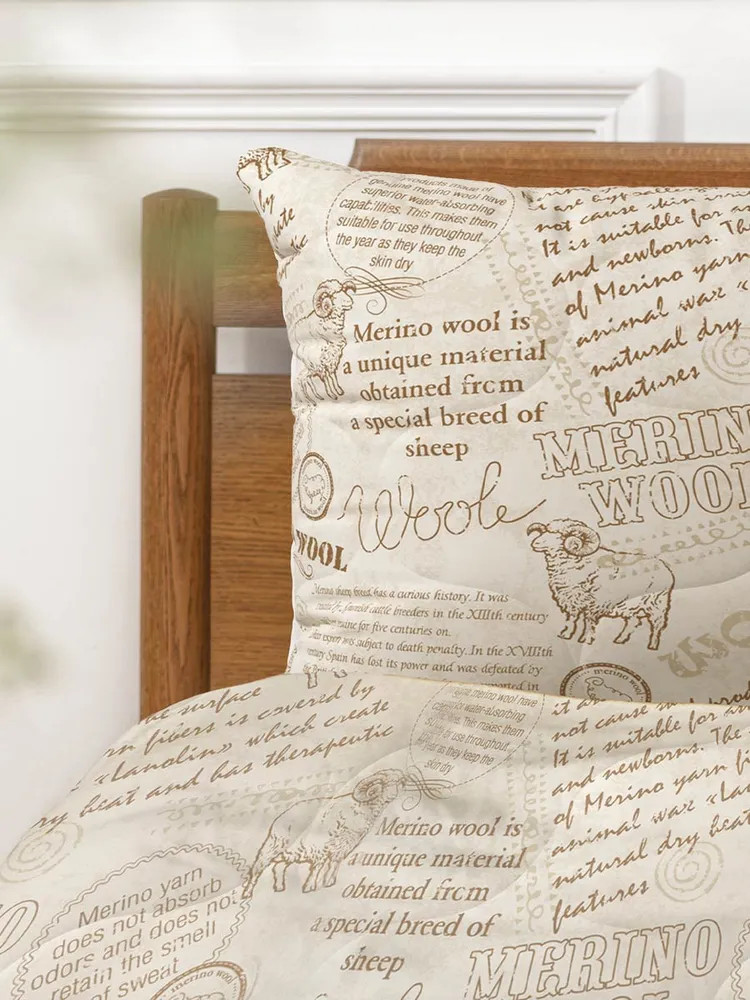 by
products made of
genuine merino wool have
superior water-absorbing
capabilities. This makes them
suitable for use throughout
the year as they keep the
skin dry
not cause skin
It is suitable for
and newborns. The
of Merino yarn
animal wax
natural dry
features
Merino wool is
a unique material
obtained from
a special breed of
sheep
MERIN
WOOL
Woole
WOOL
has a curious history. It was
cattle breeders in the XIIIth century
for five centuries on.
was subject to death penalty. In the XVIIIth
Spain has lost its power and was defeated by
merino wool
surface
fibers is covered by
«Lanolin» which create
heat and has therapeutic
merino wool have
water-absorbing
This makes them
suitable for use throughout
the year as they keep the
skin dry
not cause
It is suitable for
and newborns. The
of Merino yarn
animal wax
natural dry heat
features
Merino wool is
a unique material
obtained from
a special breed of
sheep
MERINO
Merino yarn
does not absorb
odors and does not
retain the smell
of sweat
merino wool